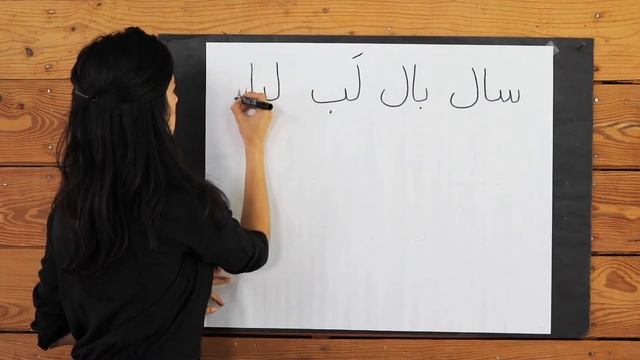 سال بال لَب